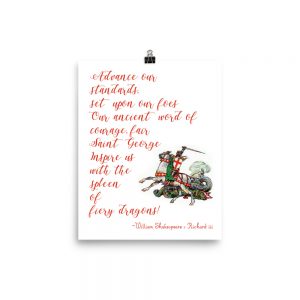 Advance our
standards,
set upon our foes
Our ancient word of
courage, fair
Saint George
Inspire us
with the
spleen
of
fiery dragons!
~William Shakespeare ~ Richard iii